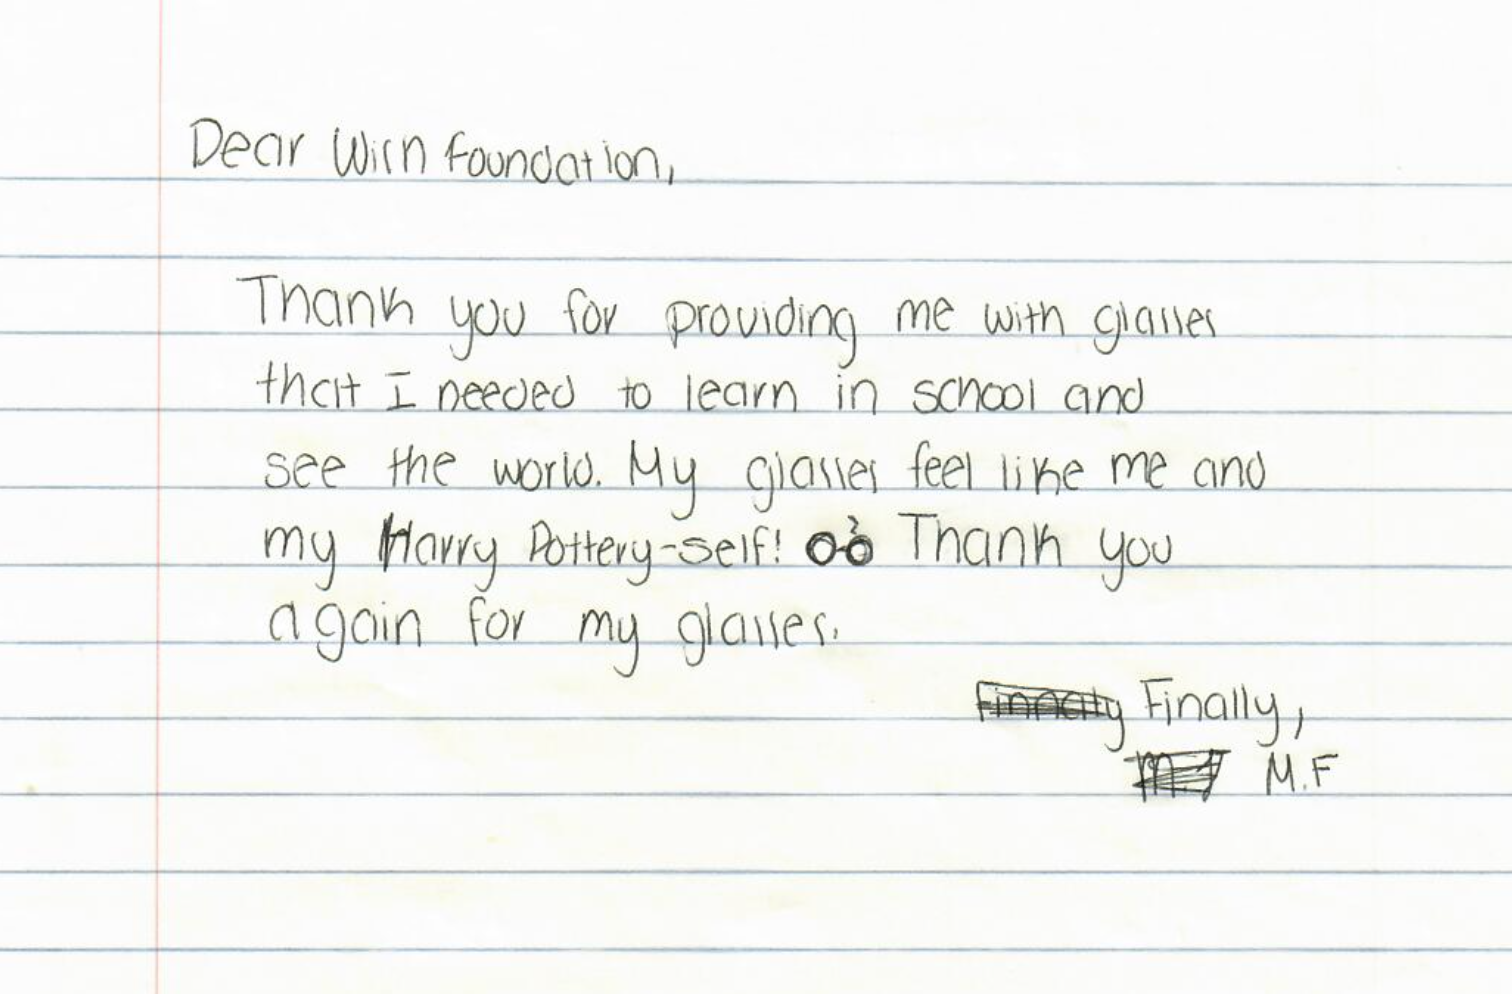 Dear Wirn foundation,
Thank you for providing me with glasses
that I needed to learn in school and
see the world. My glasses feel like me and
my Harry Pottery-self! Thank you
again for my glasses.
Finnaly Finally,
M.F